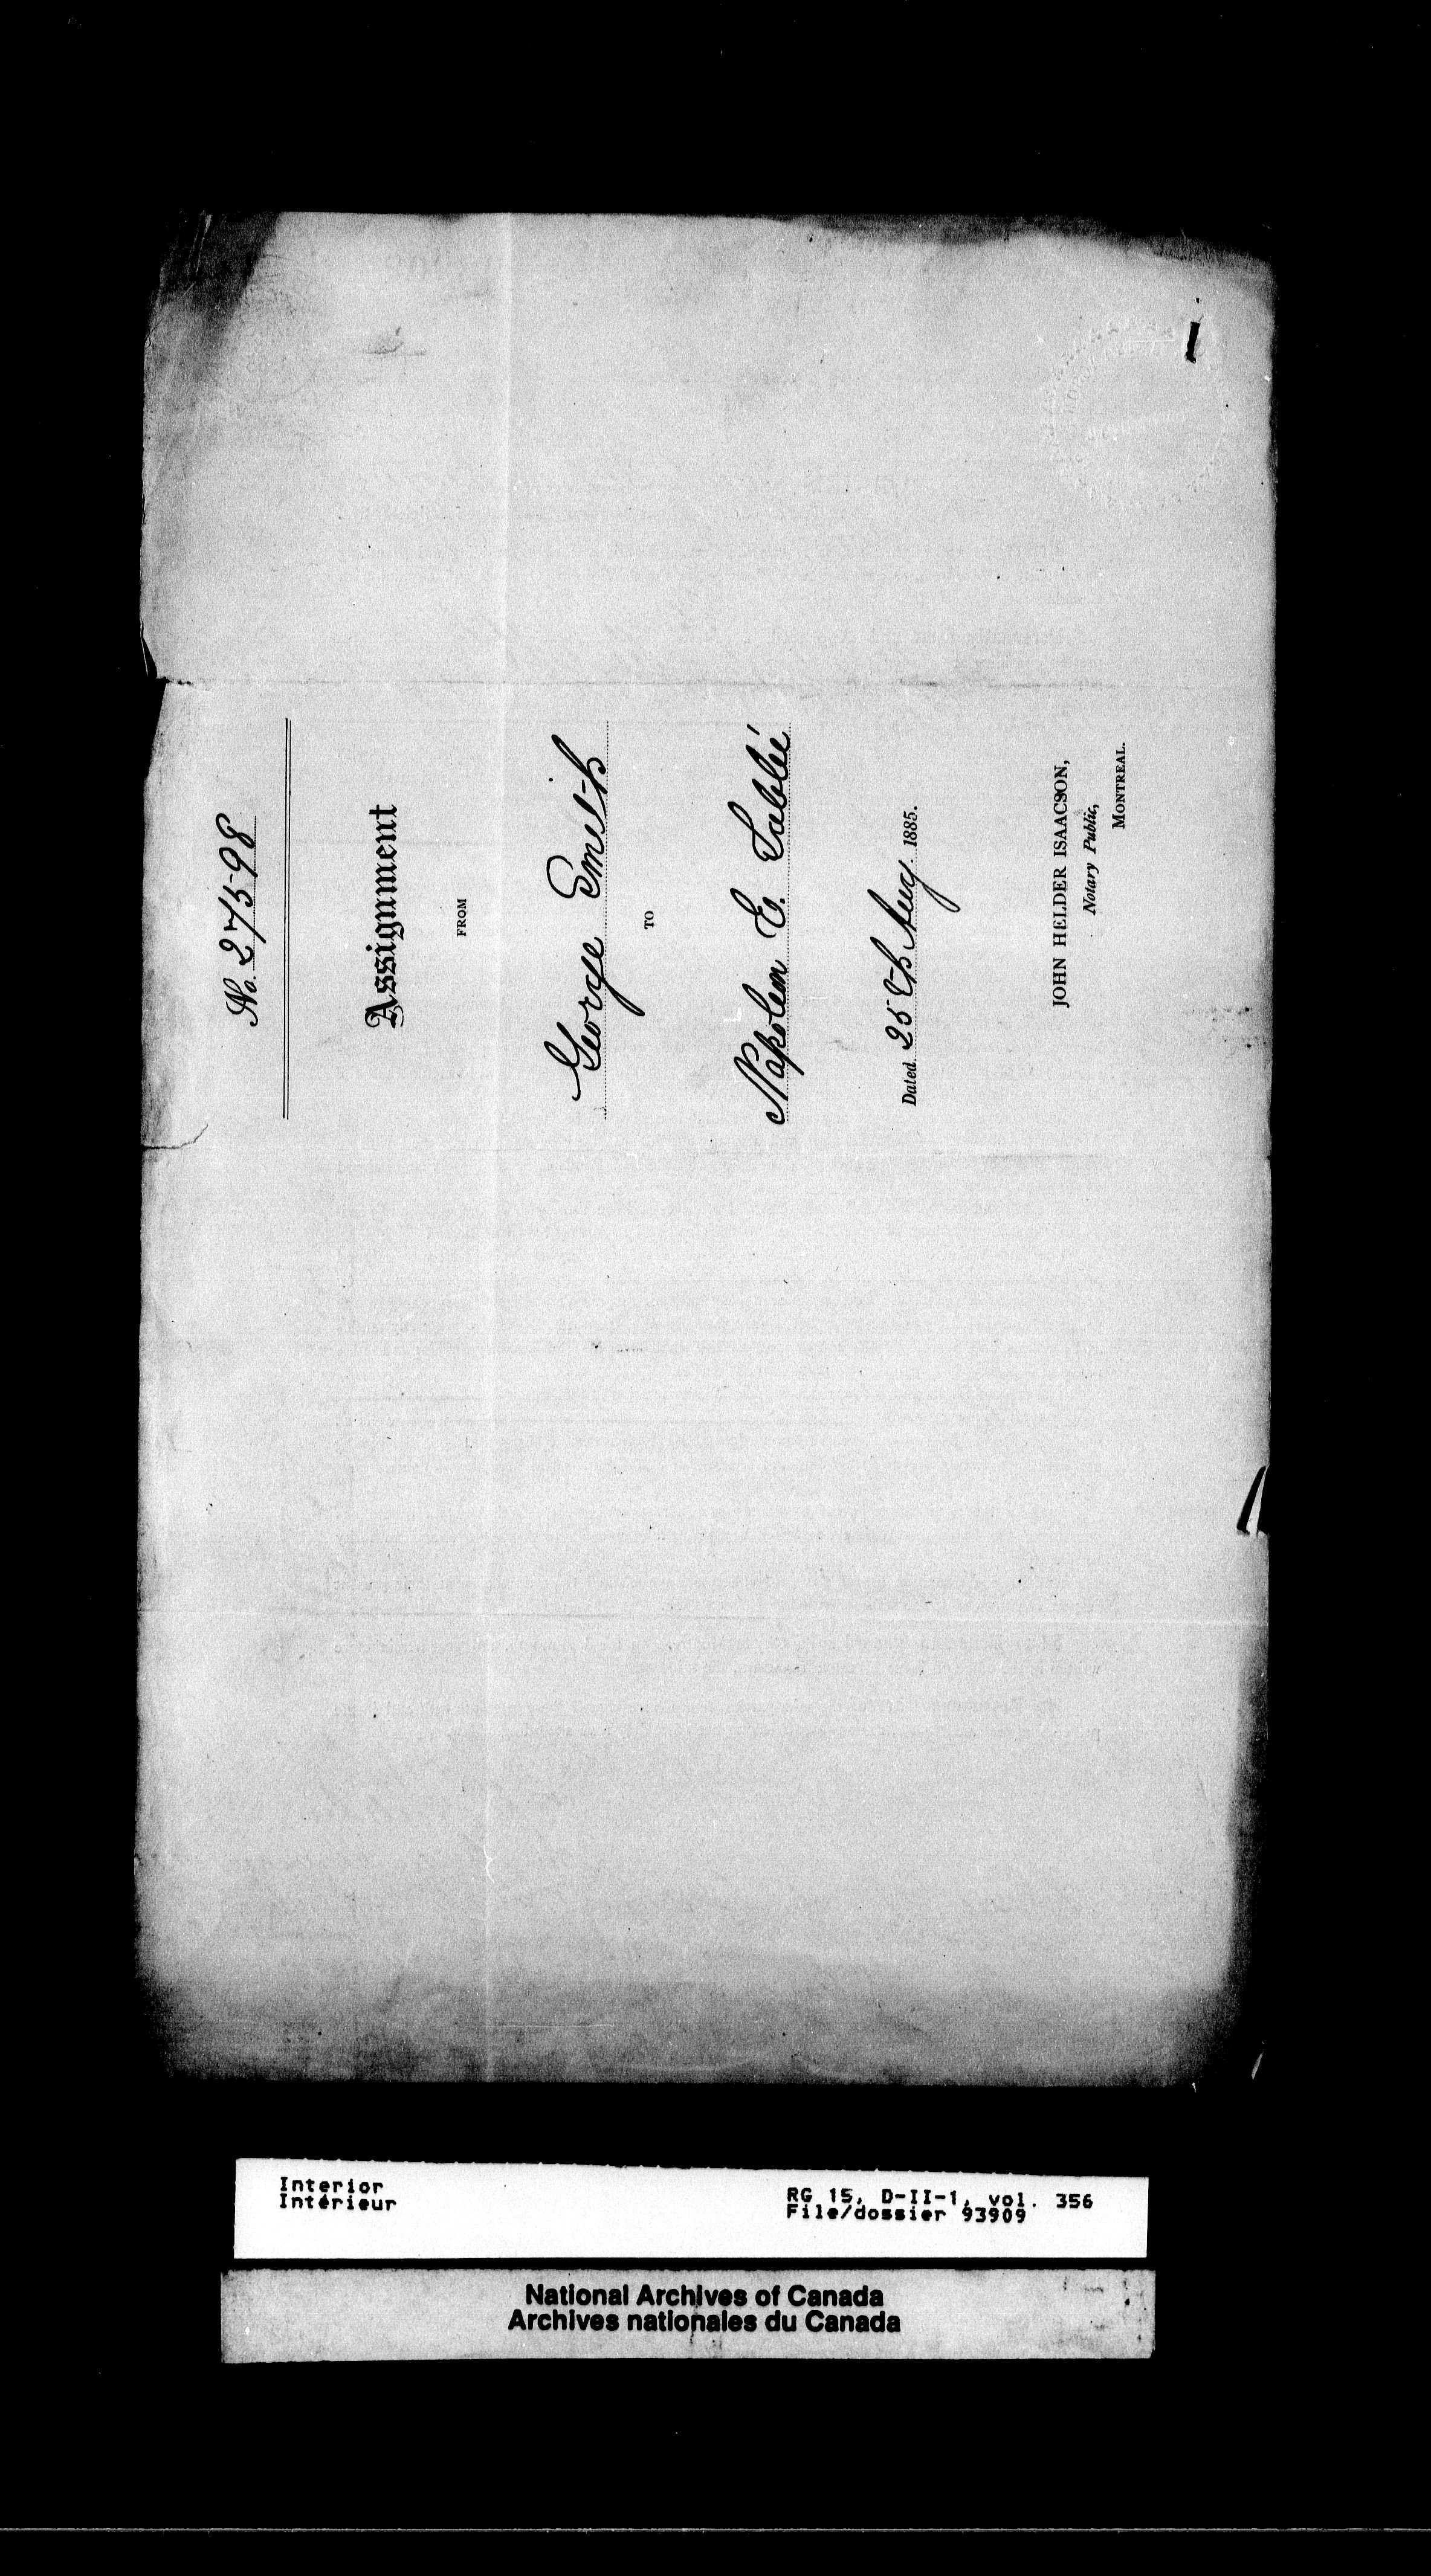 No. 27598
Assignment
FROM
George Smith
TO
Napoleon E. Sablié
Dated 25th Aug. 1885.
JOHN HELDER ISAACSON,
Notary Public,
MONTREAL.
Interior
Intérieur
RG 15, D-II-1, vol. 356
File/dossier 93909
National Archives of Canada
Archives nationales du Canada